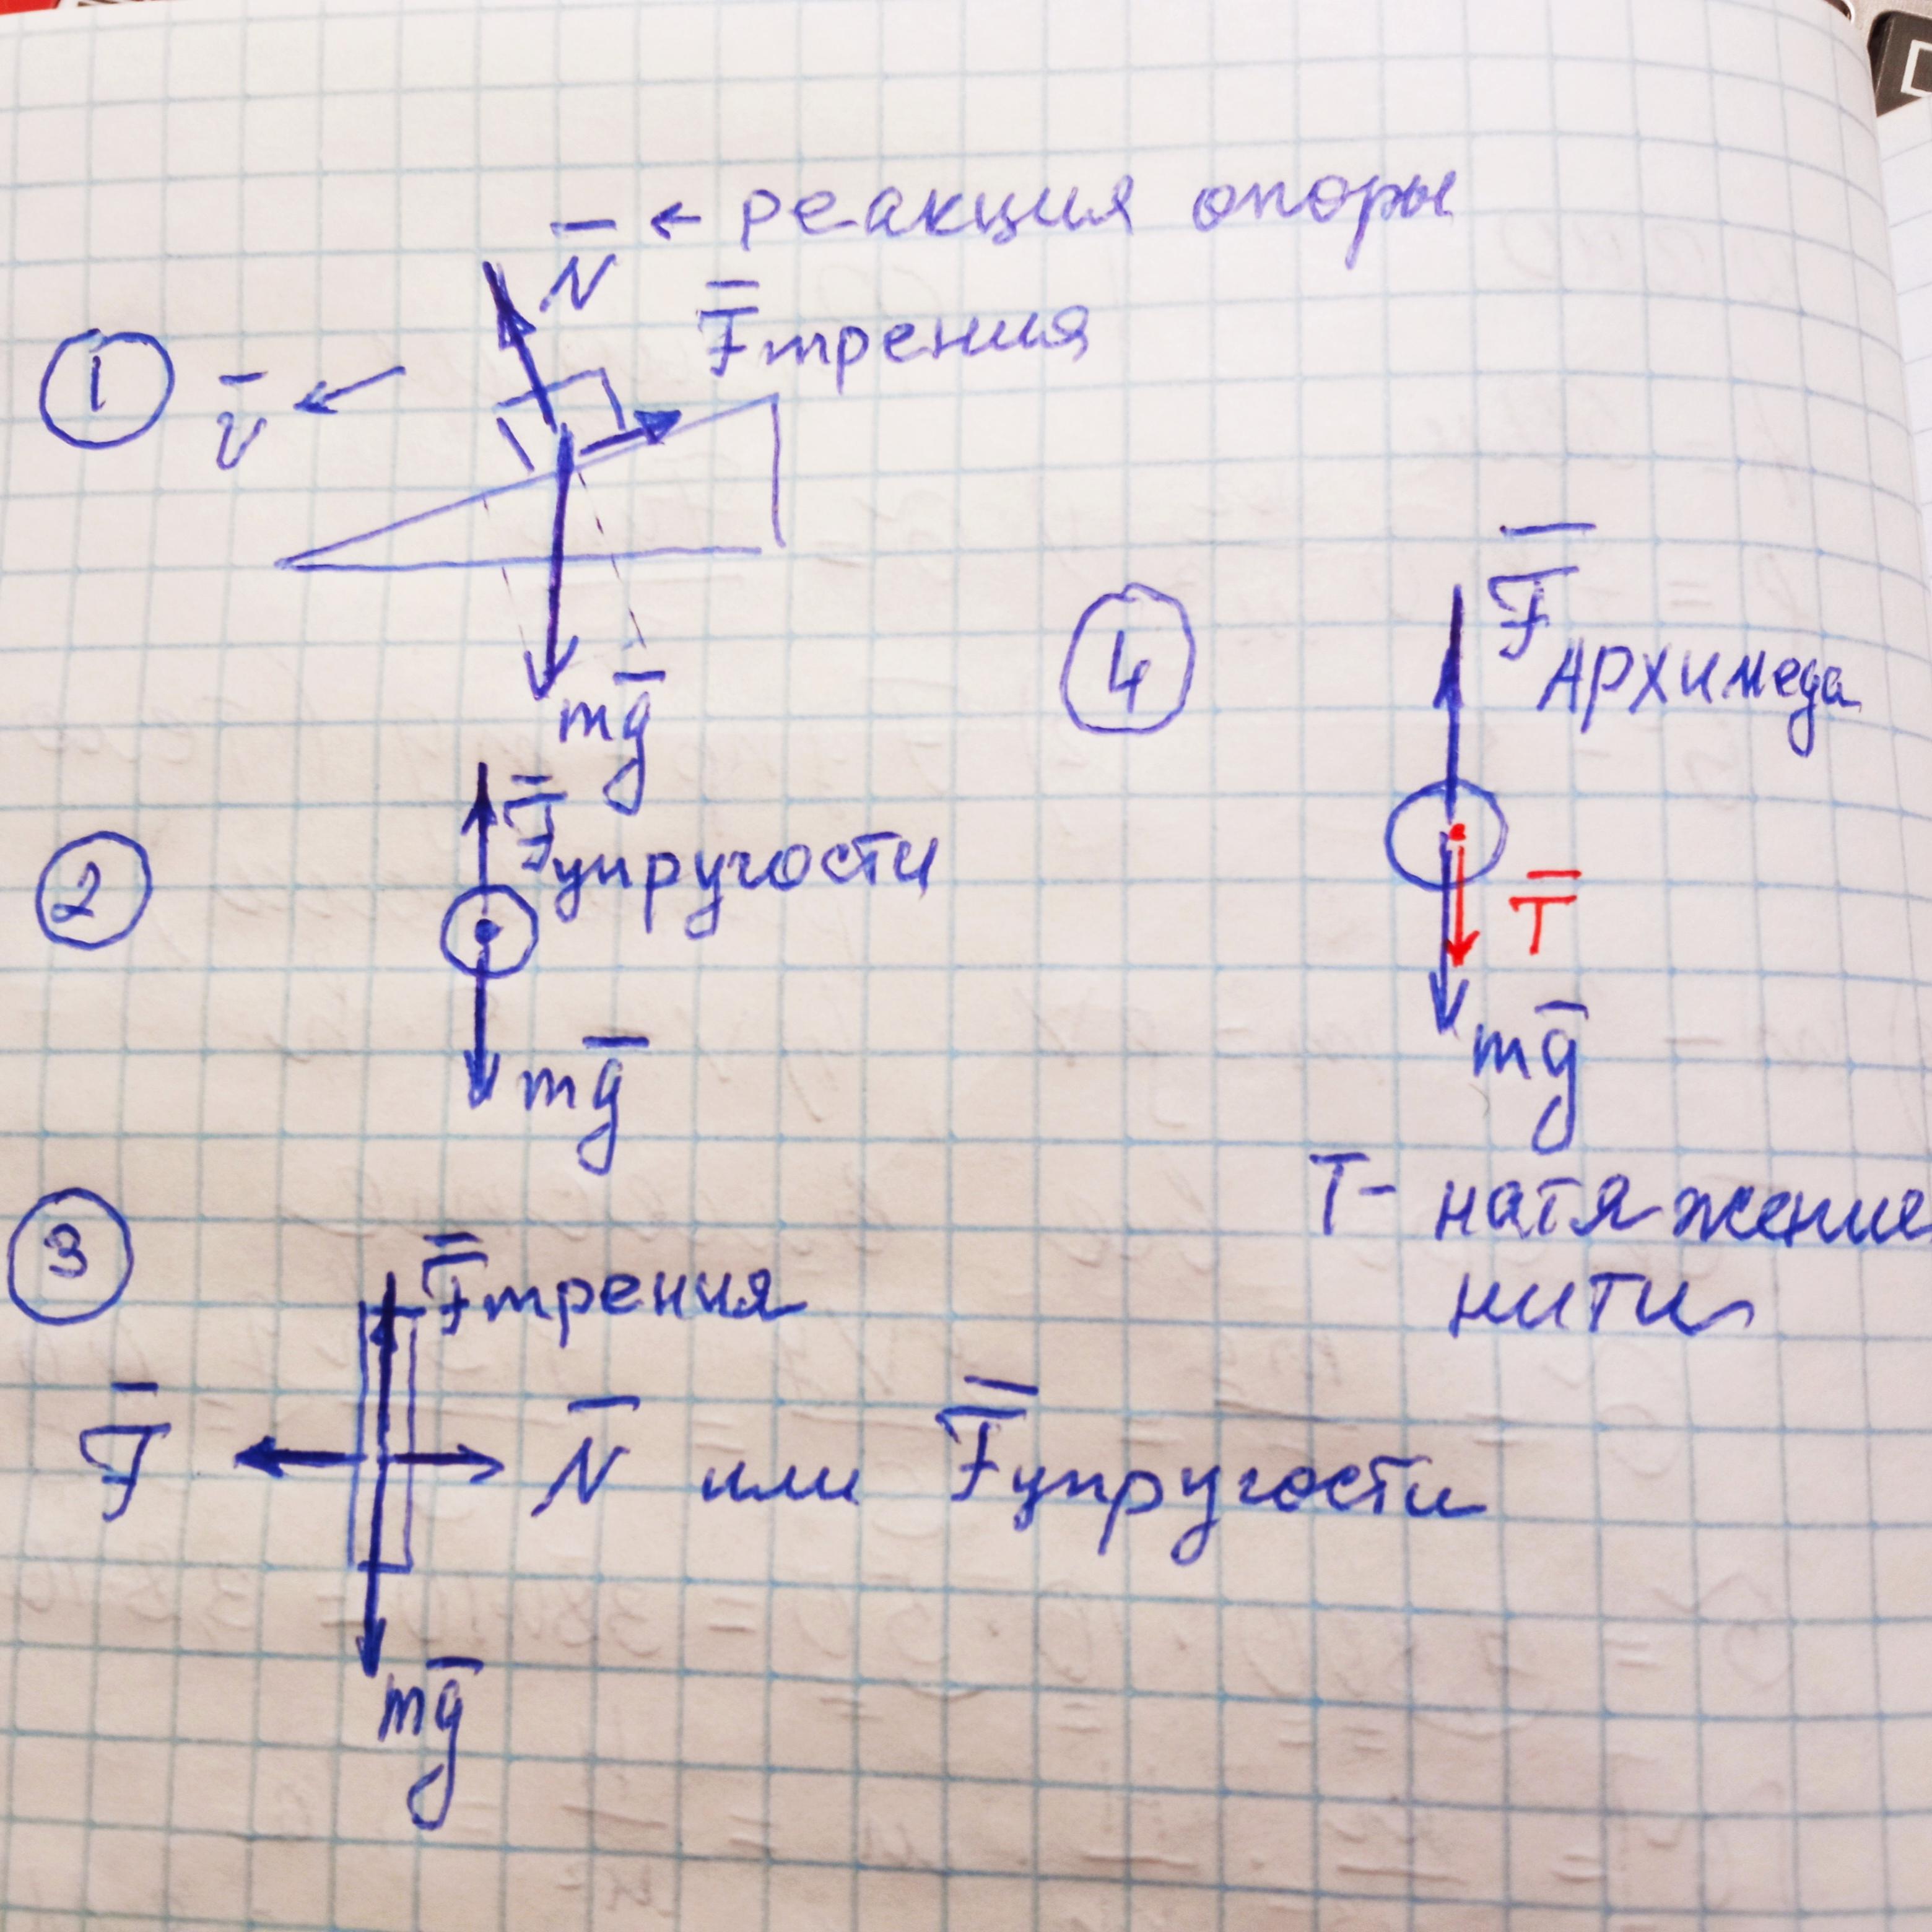 N̅ ← реакция опоры
F̅трения
① v̅
mg̅
② F̅упругости
mg̅
③ F̅трения
F̅ N̅ или F̅упругости
mg̅
④ F̅Архимеда
T̅
mg̅
T- натяжение
нити